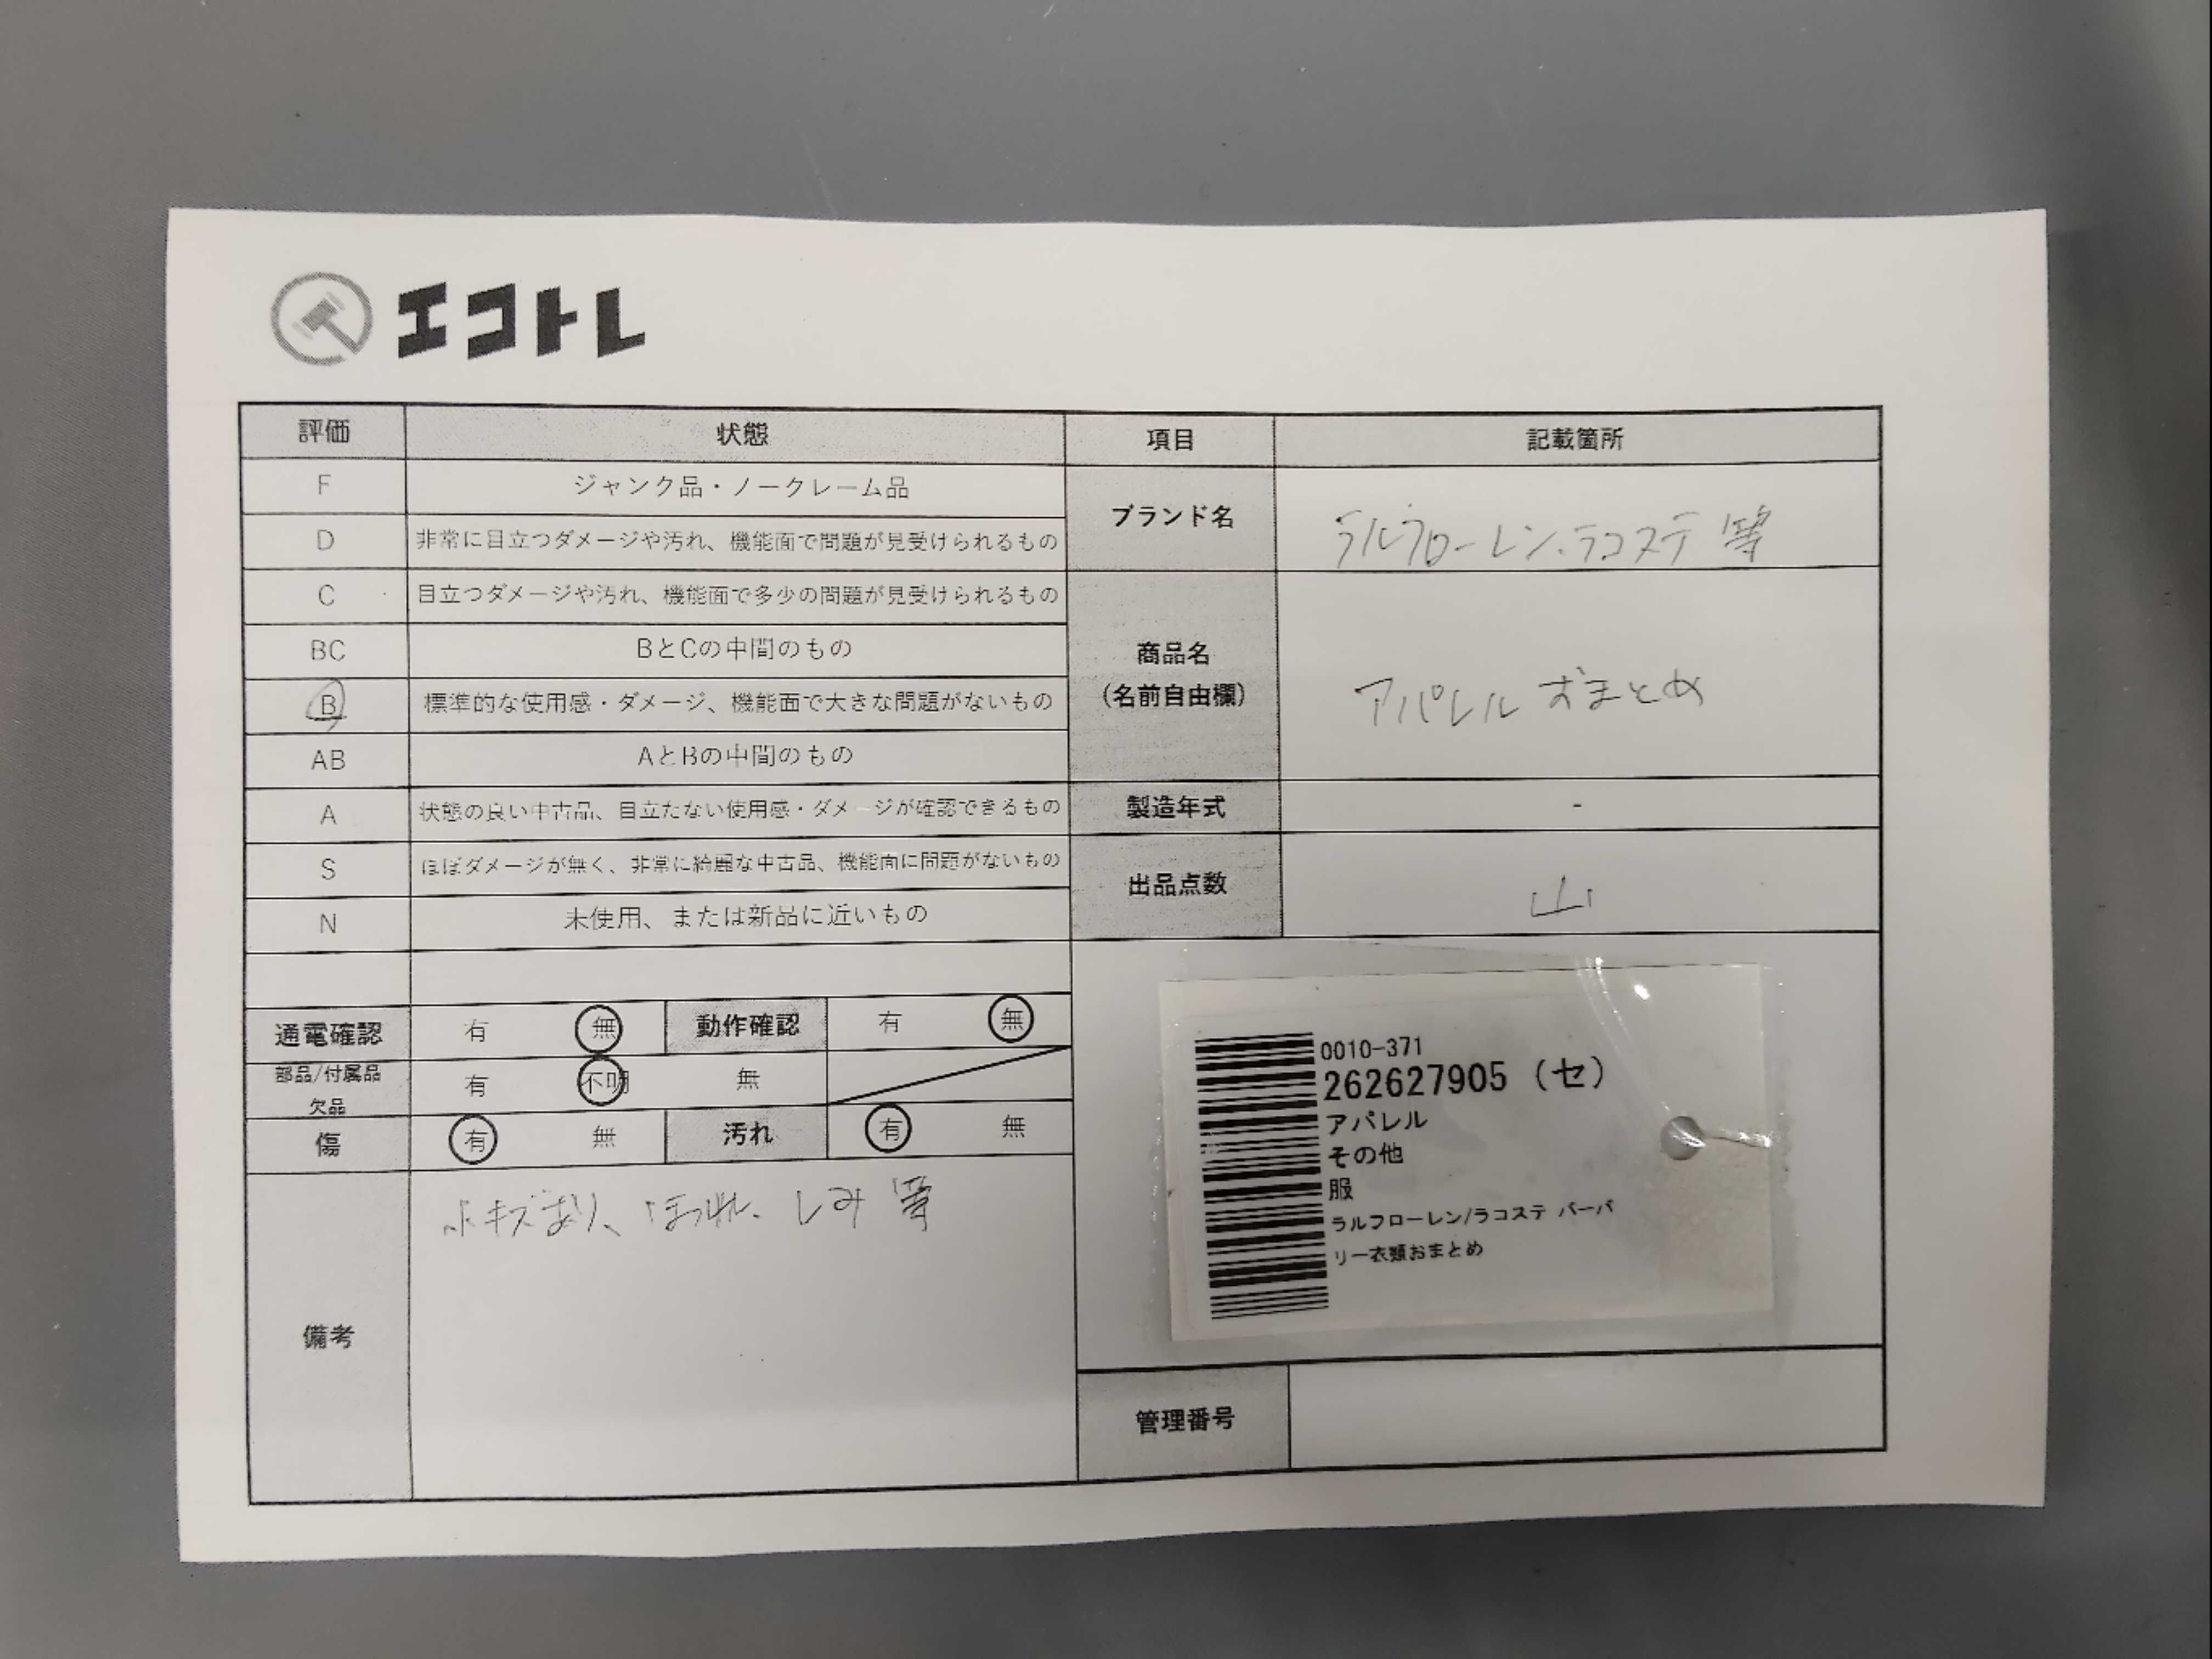 エコトレ
評価 状態 項目 記載箇所
F ジャンク品・ノークレーム品
D 非常に目立つダメージや汚れ、機能面で問題が見受けられるもの
ブランド名 ラルフローレン、ラコステ 等
C 目立つダメージや汚れ、機能面で多少の問題が見受けられるもの
BC BとCの中間のもの
B 標準的な使用感・ダメージ、機能面で大きな問題がないもの
商品名
(名前自由欄)
アパレル おまとめ
AB AとBの中間のもの
A 状態の良い中古品、目立たない使用感・ダメージが確認できるもの
製造年式 -
S ほぼダメージが無く、非常に綺麗な中古品、機能面に問題がないもの
出品点数 山
N 未使用、または新品に近いもの
通電確認 有 無 動作確認 有 無
部品/付属品
欠品
有 不明 無
傷 有 無 汚れ 有 無
備考
小キズあり、ほつれ、しみ 等
0010-371
262627905 (セ)
アパレル
その他
服
ラルフローレン/ラコステ バーバ
リー衣類おまとめ
管理番号